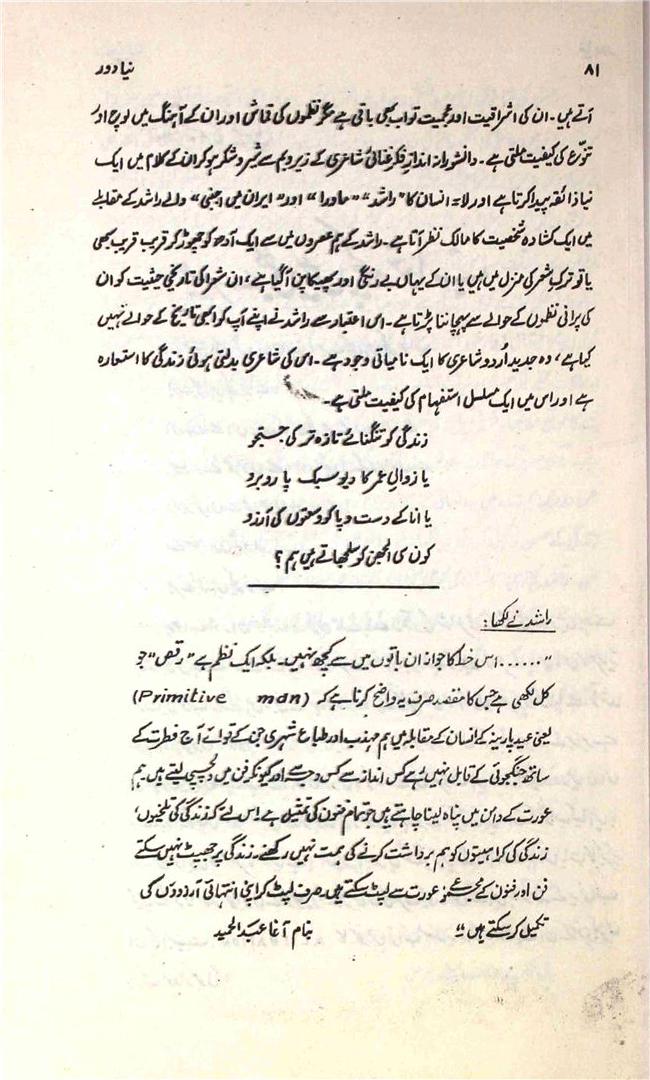 ۸۱
نیا دور
آتے ہیں۔ ان کی اشراقیت اور عجمیت تو اب بھی باقی ہے مگر نظموں کی قماش اور ان کے آہنگ میں لوچ اور
تنوّع کی کیفیت ملتی ہے۔ دانشورانہ اندازِ فکر غنائی شاعری کے زیر و بم سے شیر و شکر ہو کر ان کے کلام میں ایک
نیا ذائقہ پیدا کرتا ہے اور لا= انسان کا "راشد" "ماورا" اور "ایران میں اجنبی" والے راشد کے مقابلے
میں ایک کشادہ شخصیت کا مالک نظر آتا ہے۔ راشد کے ہم عصروں میں سے ایک آدھ کو چھوڑ کر قریب قریب سبھی
یا تو ترکِ شعر کی منزل میں ہیں یا ان کے یہاں بے رنگی اور پھیکا پن آگیا ہے، ان شعرا کی تاریخی حیثیت کو ان
کی پرانی نظموں کے حوالے سے پہچاننا پڑتا ہے۔ اس اعتبار سے راشد نے اپنے آپ کو ابھی تاریخ کے حوالے نہیں
کیا ہے، وہ جدید اُردو شاعری کا ایک نامیاتی وجود ہے۔ اس کی شاعری بدلتی ہوئی زندگی کا استعارہ
ہے اور اس میں ایک مسلسل استفہام کی کیفیت ملتی ہے۔
زندگی کو تنگنائے تازہ تر کی جستجو
یا زوالِ عمر کا دیو سبک پا رو برو
یا انا کے دست و پا کو وسعتوں کی آرزو
کون سی الجھن کو سلجھاتے ہیں ہم؟
راشد نے لکھا:
"...... اس خط کا جواز ان باتوں میں سے کچھ نہیں۔ بلکہ ایک نظم ہے "رقص" جو
کل لکھی ہے جس کا مقصد صرف یہ واضح کرنا ہے کہ (Primitive man)
یعنی عہدِ پارینہ کے انسان کے مقابلہ میں ہم مہذب اور طباع شہری جن کے قوائے آج فطرت کے
ساتھ جنگجوئی کے قابل نہیں رہے کس انداز سے کس وجہ سے اور کیونکر فن میں دلچسپی لیتے ہیں۔ ہم
عورت کے دامن میں پناہ لینا چاہتے ہیں جو تمام فنون کی تمثیل ہے اس لئے کہ زندگی کی تلخیوں،
زندگی کی کراہیتوں کو ہم برداشت کرنے کی ہمت نہیں رکھتے۔ زندگی پر جھپٹ نہیں سکتے
فن اور فنون کے مجموعے عورت سے لپٹ سکتے ہیں صرف لپٹ کر اپنی انتہائی آرزوؤں کی
تکمیل کر سکتے ہیں"
بنام آغا عبدالحمید